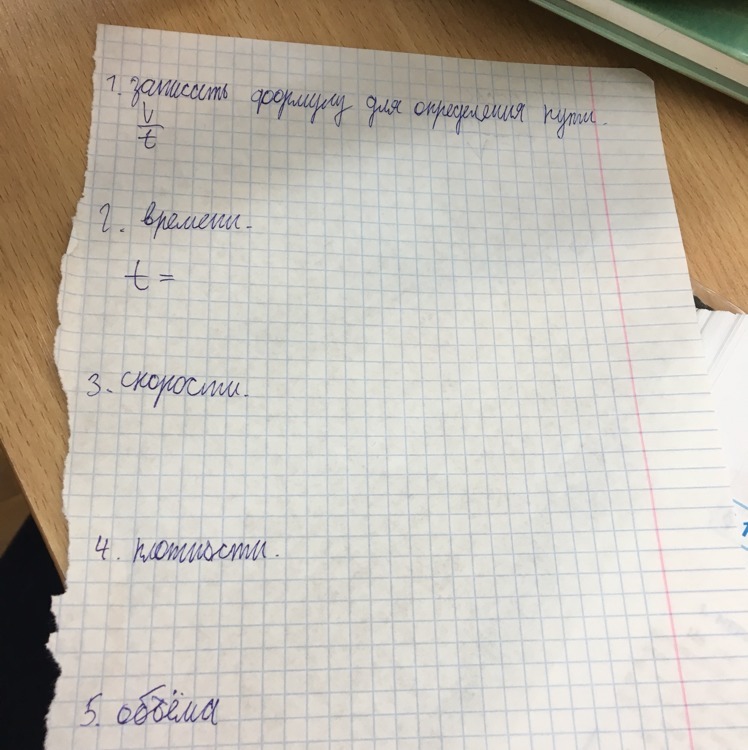 1. записать формулу для определения пути.
V
t
2. времени.
t =
3. скорости.
4. плотности.
5. объёма